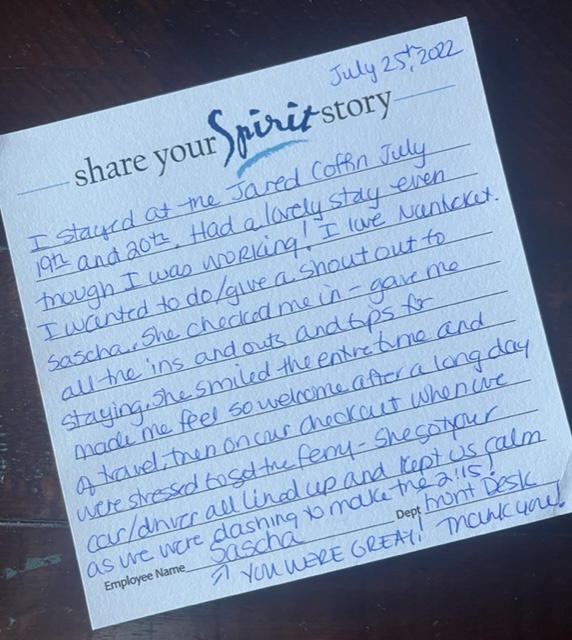 July 25th, 2022
share your Spirit story
I stayed at the Jared Coffin July
19th and 20th. Had a lovely stay even
though I was working! I love Nantucket.
I wanted to do/give a shout out to
Sascha. She checked me in - gave me
all the ins and outs and tips for
staying. She smiled the entire time and
made me feel so welcome after a long day
of travel. Then on our checkout when we
were stressed to get the ferry - She got our
car/driver all lined up and kept us calm
as we were dashing to make the 2:15!
Employee Name Sascha Dept Front Desk
↗ YOU WERE GREAT! Thank you!